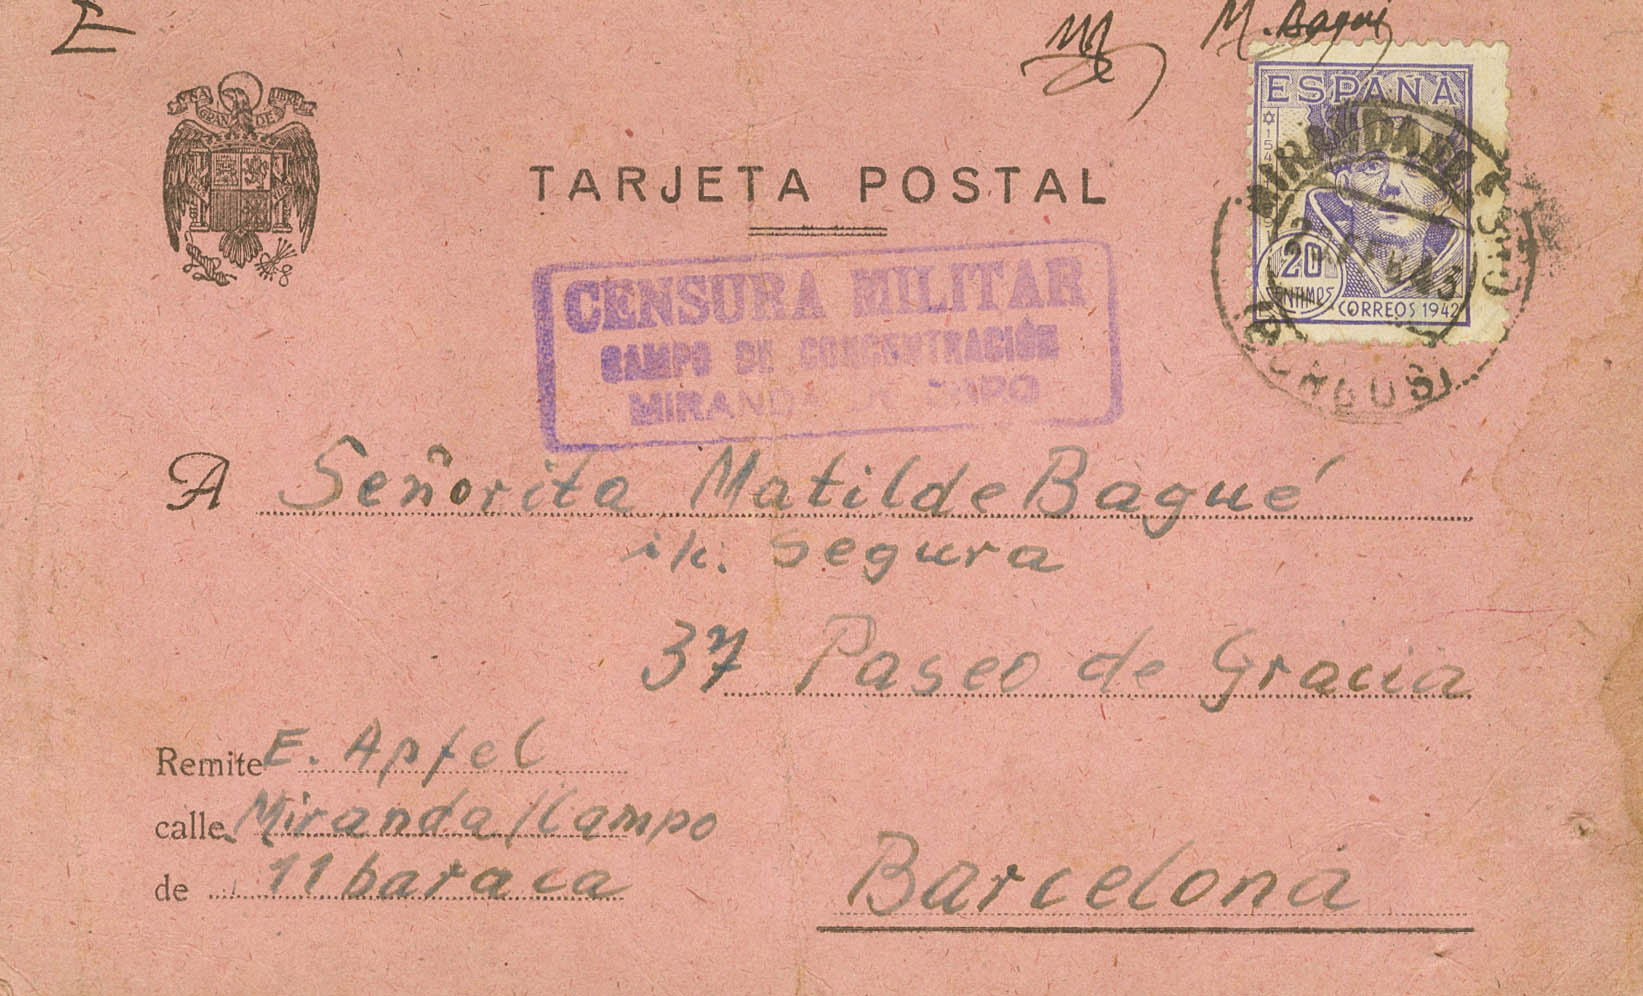 E M. Bagué
UNA GRANDE LIBRE
ESPAÑA
TARJETA POSTAL
MIRANDA DE
20
CENTIMOS
CORREOS 1942
BURGOS
CENSURA MILITAR
CAMPO DE CONCENTRACIÓN
MIRANDA DE EBRO
A Señorita Matilde Bagué
Segura
37 Paseo de Gracia
Remite E. Apfel
calle Miranda/Campo
de 11 baraca
Barcelona